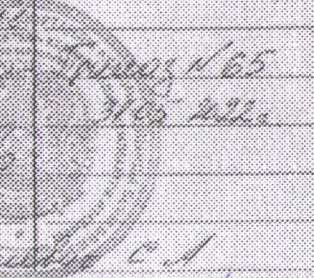 Приказ N 65
31 05 2022г.
С Л